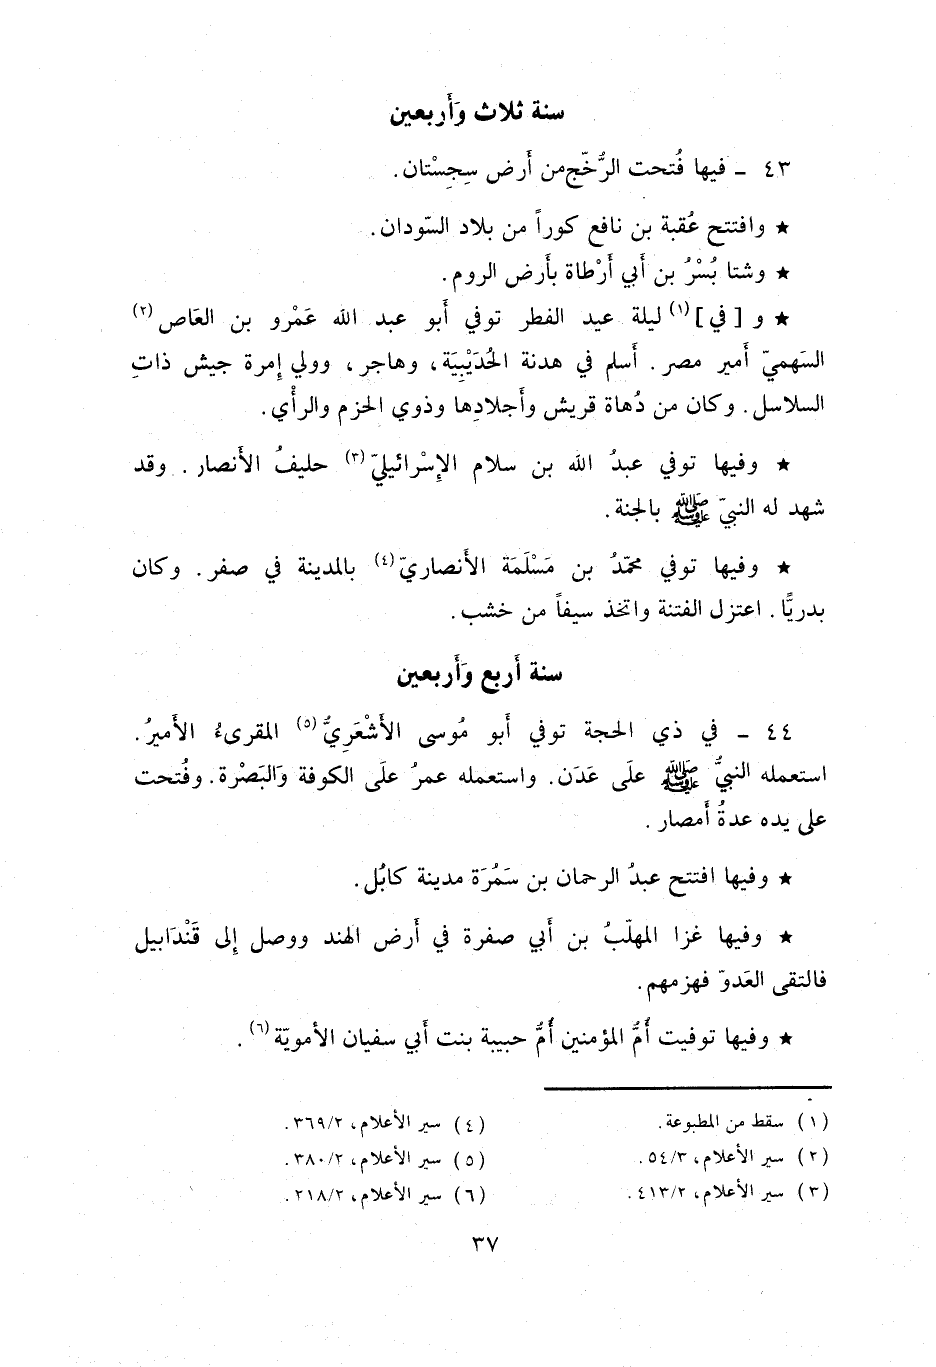 سنة ثلاث وَأَربعين
٤٣ ـ فيها فُتحت الرُّخّج من أَرض سِجِسْتان.
★ وافتتح عُقبة بن نافع كوراً من بلاد السّودان.
★ وشتا بُسْرُ بن أَبي أَرْطاة بأَرض الروم.
★ و [في](١) ليلة عيد الفطر توفي أَبو عبد الله عَمْرو بن العَاص(٢)
السَهميّ أَمير مصر. أَسلم في هدنة الحُدَيْبِيَة، وهاجر، وولي إِمرة جيش ذاتِ
السلاسل. وكان من دُهاة قريش وأَجلادِها وذوي الحزم والرأْي.
★ وفيها توفي عبدُ الله بن سلام الإِسْرائيليّ(٣) حليفُ الأَنصار. وقد
شهد له النبيّ ﷺ بالجنة.
★ وفيها توفي محمّدُ بن مَسْلَمَة الأَنصاريّ(٤) بالمدينة في صفر. وكان
بدريًّا. اعتزل الفتنة واتخذ سيفاً من خشب.
سنة أَربع وَأَربعين
٤٤ ـ في ذي الحجة توفي أَبو مُوسى الأَشْعَرِيُّ(٥) المقرىءُ الأَميرُ.
استعمله النبيُّ ﷺ علَى عَدَن. واستعمله عمرُ علَى الكوفة وَالبَصْرة. وفُتحت
على يده عدةُ أَمصار.
★ وفيها افتتح عبدُ الرحمان بن سَمُرَة مدينة كابُل.
★ وفيها غزا المهلّبُ بن أَبي صفرة في أَرض الهند ووصل إِلى قَنْدَابيل
فالتقى العَدوّ فهزمهم.
★ وفيها توفيت أُمُّ المؤمنين أُمُّ حبيبة بنت أَبي سفيان الأمويّة(٦).
(١) سقط من المطبوعة.
(٢) سير الأعلام، ٥٤/٣.
(٣) سير الأعلام، ٤١٣/٢.
(٤) سير الأعلام، ٣٦٩/٢.
(٥) سير الأعلام، ٣٨٠/٢.
(٦) سير الأعلام، ٢١٨/٢.
٣٧